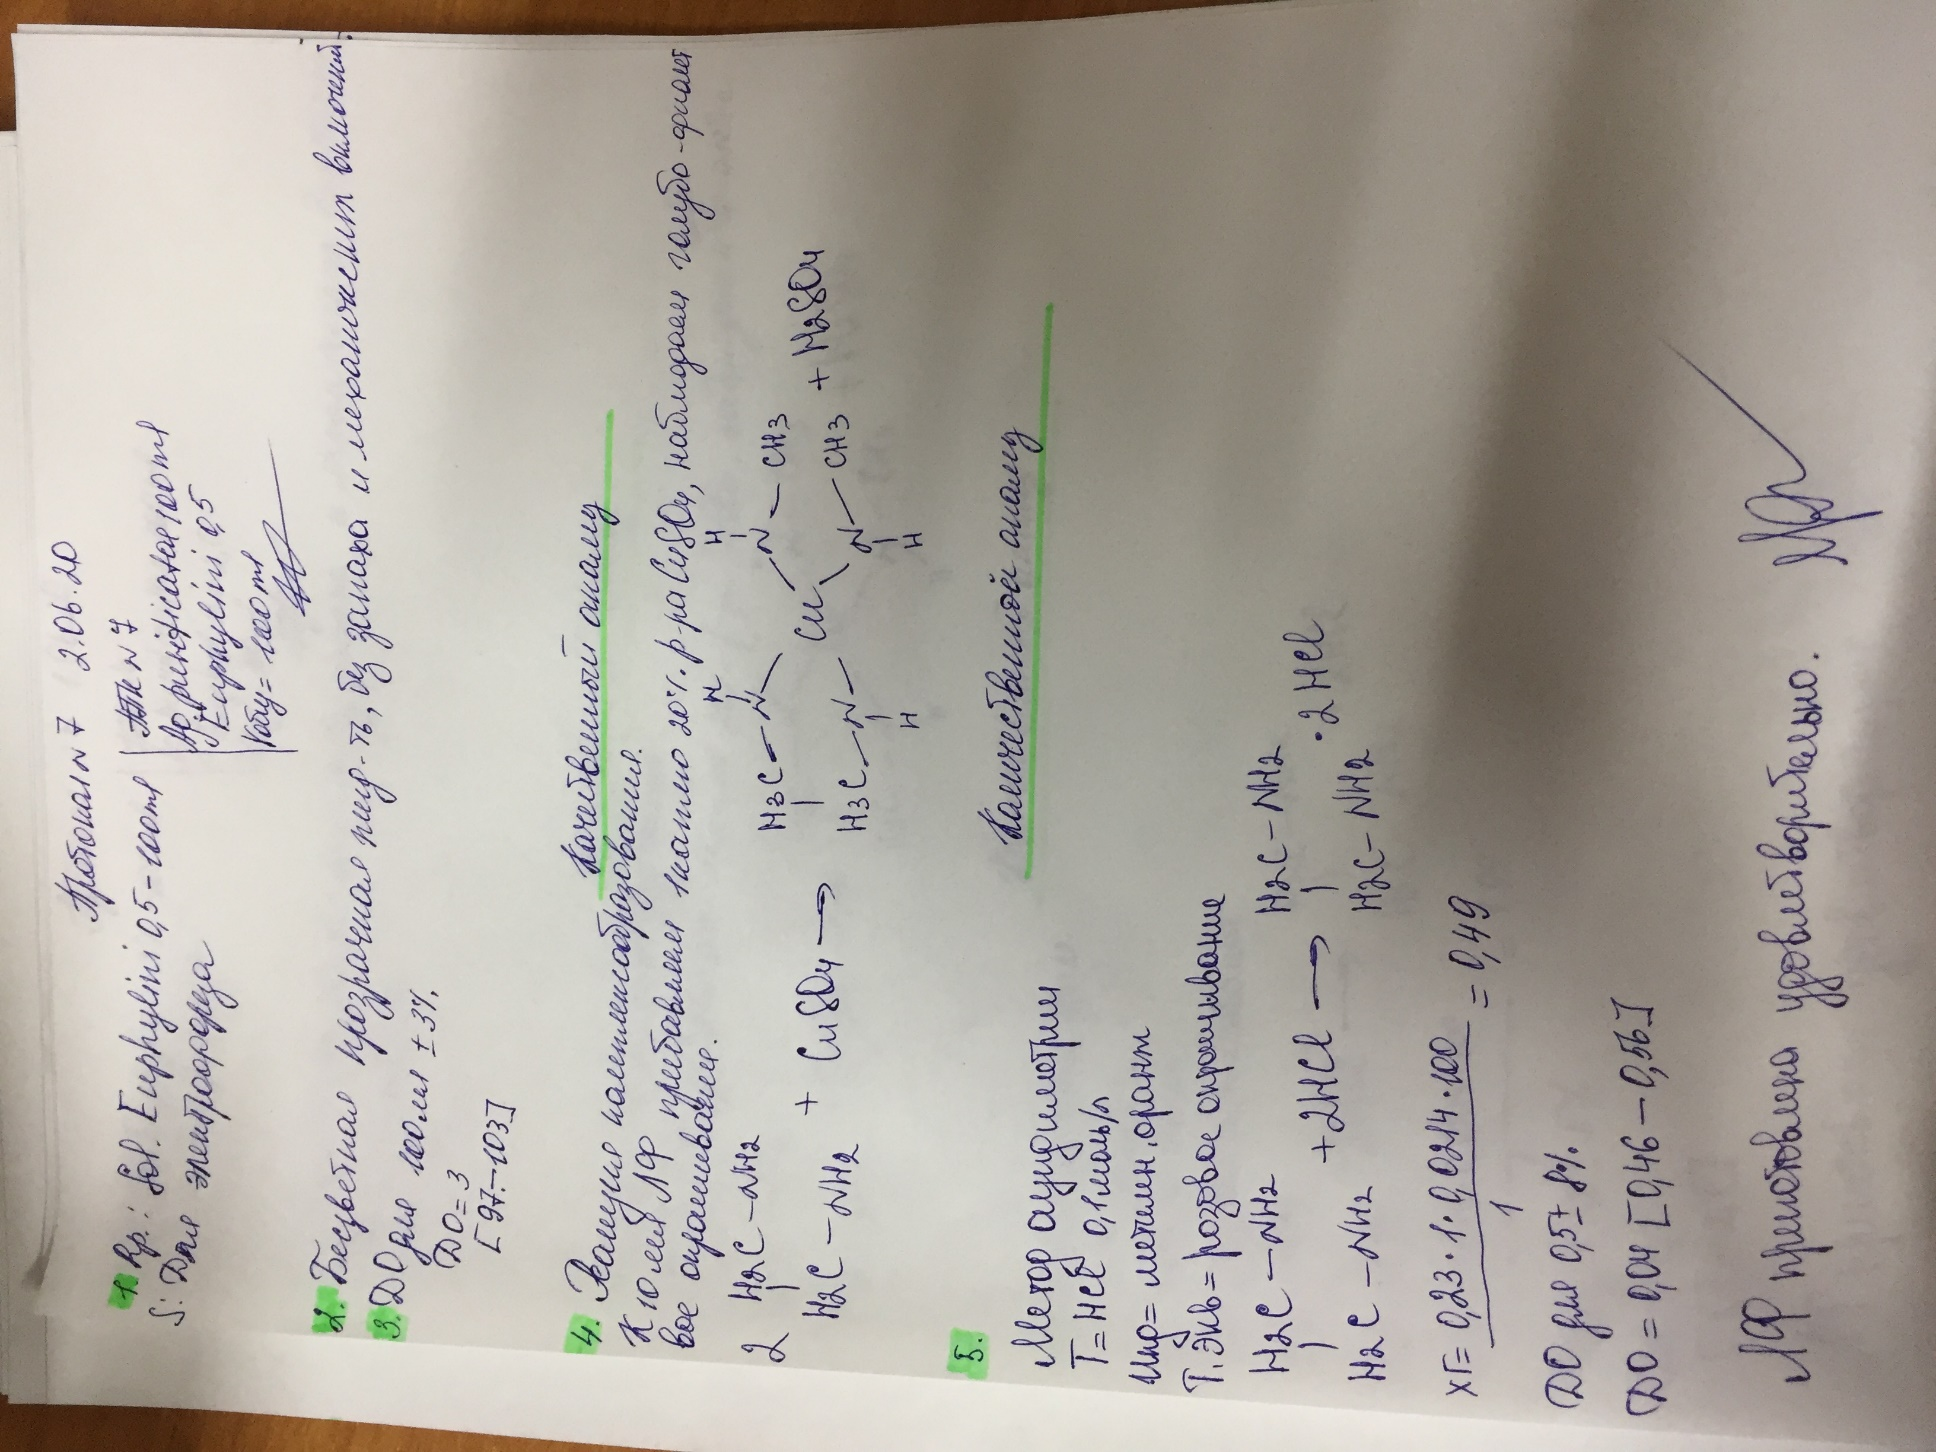 Протокол №7 2.06.20
1. Rp.: Sol. Euphylini 0,5 - 100ml
S: Для электрофореза
ППК №7
Aq. purificatae 100ml
Euphylini 0,5
Vобщ = 100ml
2. Бесцветная прозрачная жид-ть, без запаха и механических включений.
3. ДО для 100мл ± 3%
ДО = 3
[97 - 103]
Качественный анализ
4. Реакция комплексообразования.
К 10 мл ЛФ прибавляем 20% р-ра CuSO4, наблюдаем голубо-фиолет
вое окрашивание.
2 H2C - NH2
H2C - NH2 + CuSO4 →
H3C - N H Cu N H - CH3
H3C - N H N H - CH3 + H2SO4
Количественный анализ
5. Метод ацидиметрии
T = HCl 0,1 моль/л
Инд = метилен. оранж
Т. Экв = розовое окрашивание
H2C - NH2 + 2HCl → H2C - NH2 · 2HCl
H2C - NH2 H2C - NH2
XГ = 0,23 · 1 · 0,0214 · 100 / 1 = 0,49
ДО для 0,5 ± 8%
ДО = 0,04 [0,46 - 0,56]
ЛФ приготовлена удовлетворительно.